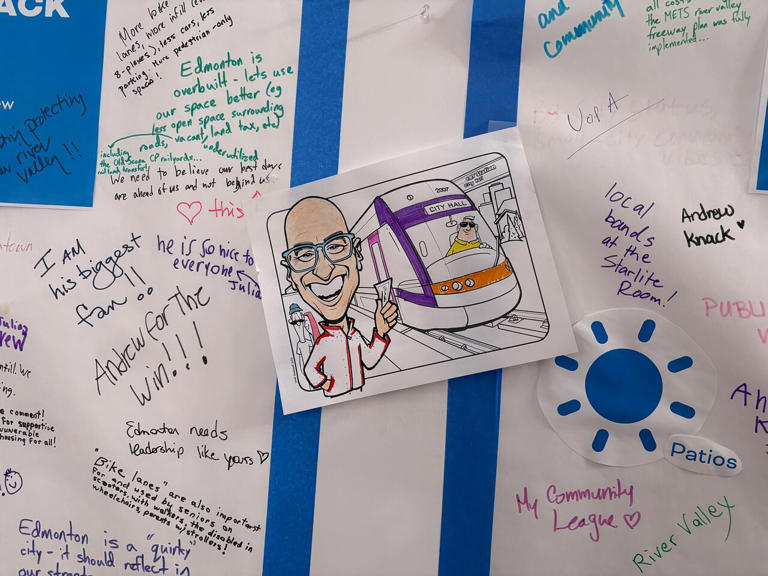 ACK
More bike
lanes, more infill
8-plexes), less cars, less
parking. More pedestrian-only
spaces!
Edmonton is
overbuilt - lets use
our space better (eg
less open space surrounding
roads, vacant land tax, etc)
including
underutilized
We need to believe our best days
are ahead of us and not behind us
♡ this ^
protecting
river
valley!!
I AM
his biggest
fan
he is so nice to
everyone
Julia
Andrew for the
win!!!
Edmonton needs
leadership like yours ♡
"Bike lanes" are also important
for and used by seniors on
scooters, with walkers, the disabled in
wheelchairs, parents w/strollers!
Edmonton is a "quirky"
city - it should reflect in
our
comment!
for supportive
housing for all!
2007
CITY HALL
and
Community
all costs
the METS river valley
freeway plan was fully
implemented...
U of A
local
bands
at the
Starlite
Room!
Andrew
Knack ♥
PUBLI
Patios
My Community
League ♡
River Valley